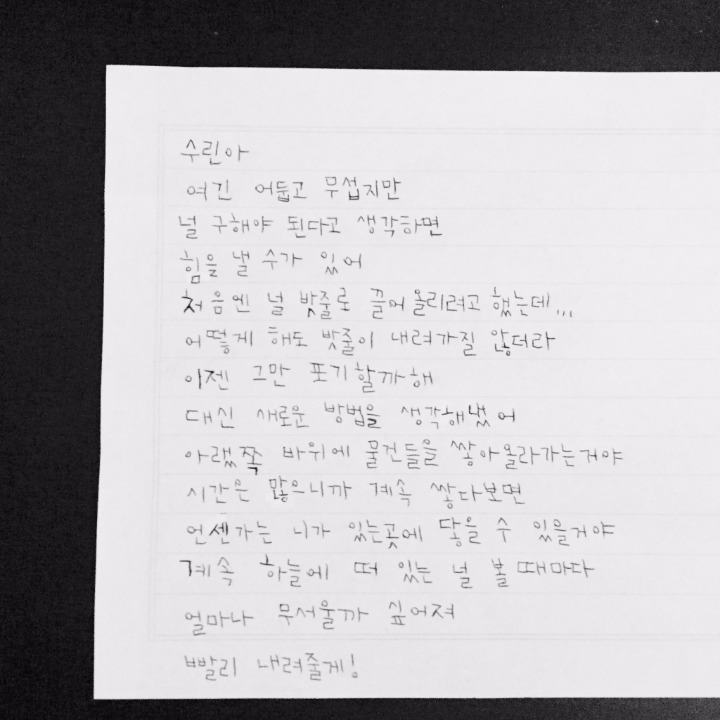 수린아
여긴 어둡고 무섭지만
널 구해야 된다고 생각하면
힘을 낼 수가 있어
처음엔 널 밧줄로 끌어올리려고 했는데...
어떻게 해도 밧줄이 내려가질 않더라
이젠 그만 포기할까해
대신 새로운 방법을 생각해냈어
아랫쪽 바위에 물건들을 쌓아올라가는거야
시간은 많으니까 계속 쌓다보면
언센가는 니가 있는곳에 닿을 수 있을거야
계속 하늘에 떠 있는 널 볼 때마다
얼마나 무서울까 싶어져
빨리 내려줄게!